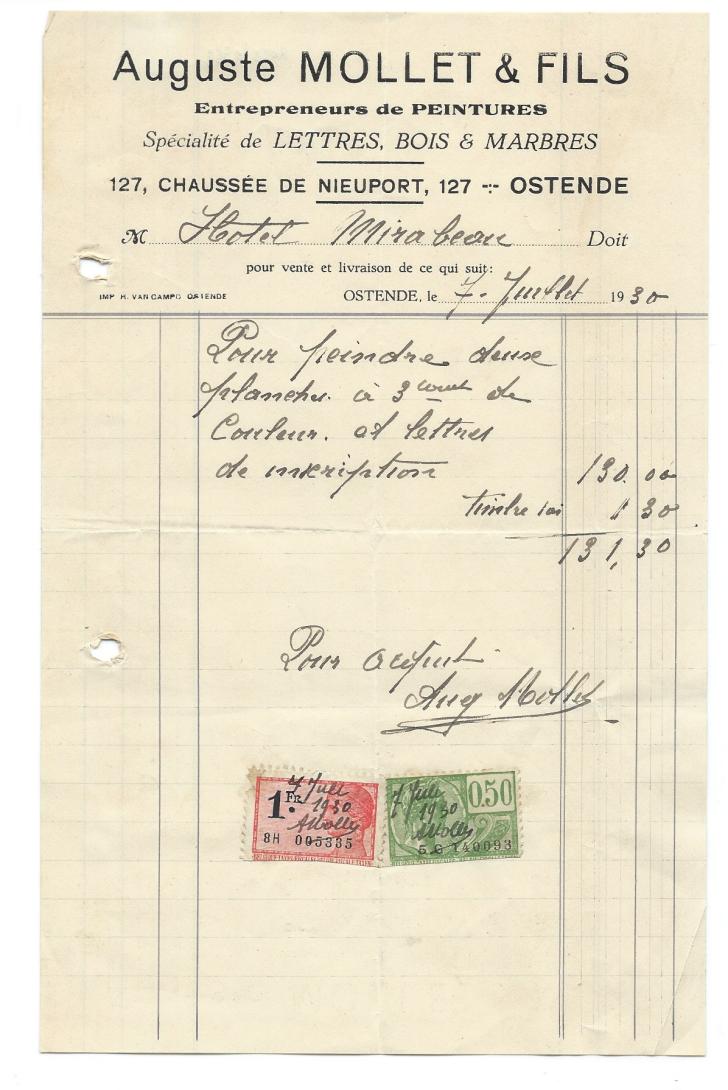 Auguste MOLLET & FILS
Entrepreneurs de PEINTURES
Spécialité de LETTRES, BOIS & MARBRES
127, CHAUSSÉE DE NIEUPORT, 127 -:- OSTENDE
M Hotel Mirabeau Doit
pour vente et livraison de ce qui suit:
IMP H. VAN CAMPO OSTENDE OSTENDE, le 7. Juillet 1930
Pour peindre deux
planches à 3 de
Couleur. et lettres
de inscription 130.00
timbre 1 30
131,30
Pour acquit
Aug Mollet
1. Fr. 7 Juli 1930 AMollet 8H 005335
0.50 7 Juli 1930 AMollet 5 G 140093